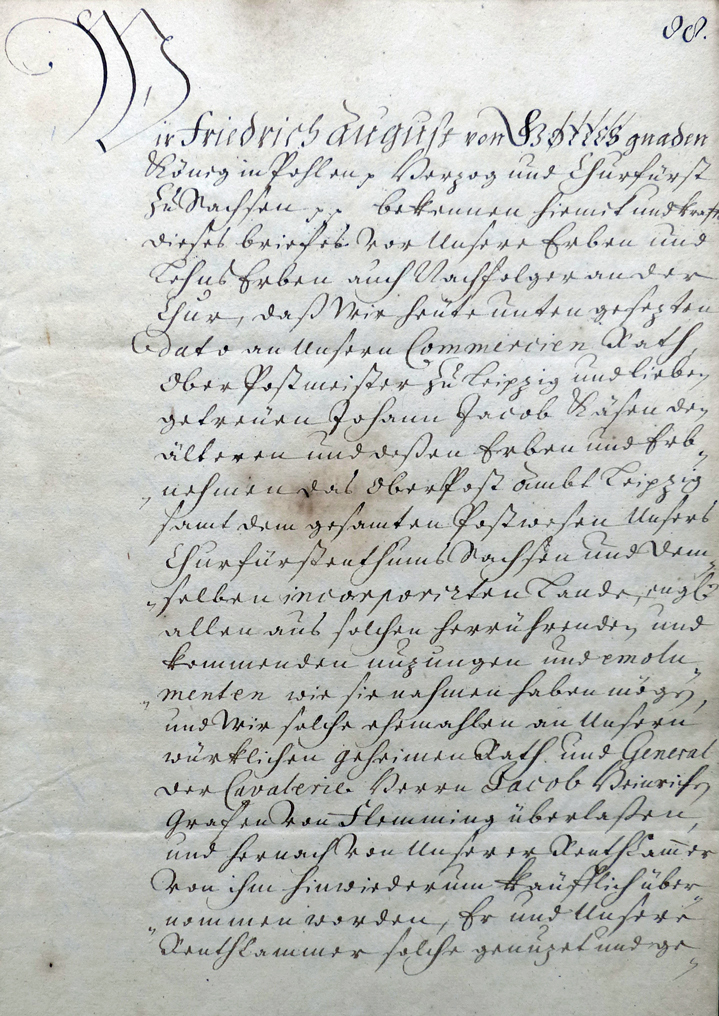 88.
Wir Friedrich August von GOTTES gnaden
König in Pohlen p Herzog und Churfürst
zu Sachsen p p bekennen hiemit und krafft
dieses briefes vor Unsere Erben und
Lehns Erben auch Nachfolger an der
Chur, daß Wir heute unten gesezten
dato an Unsern Commercien Rath,
Ober Postmeister zu Leipzig und lieben
getreüen Johann Jacob Käsen den
älteren und deßen Erben und Erb-
nehmen das Ober Post Ambt Leipzig
samt dem gesamten Postwesen Unsers
Churfürstenthums Sachsen und dem-
selben incorporirten Lande,
allen aus solchen herrührenden und
kommenden nuzungen und emolu-
menten wie sie nahmen haben mögen,
und Wir solche ehemahlen an Unsern
würklichen geheimen Rath und General
der Cavalerie. Herrn Jacob Heinrich
Grafen von Flemming überlaßen,
und hernach von Unserer Renthkammer
von ihm hinwiederum käufflich über-
nommen worden, Er und Unsere
Renthkammer solche genuzet und ge-